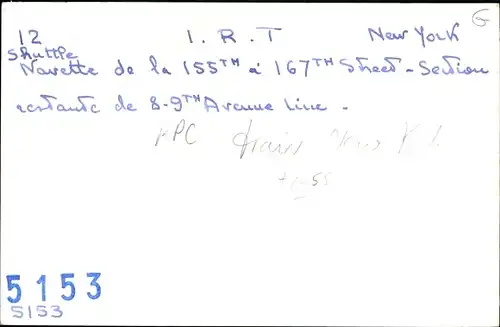 G
12 I.R.T New York
Shuttle
Navette de la 155TH à 167TH Street - Section
restante de 8-9TH Avenue Line.
PPC train New
55
5153
5153